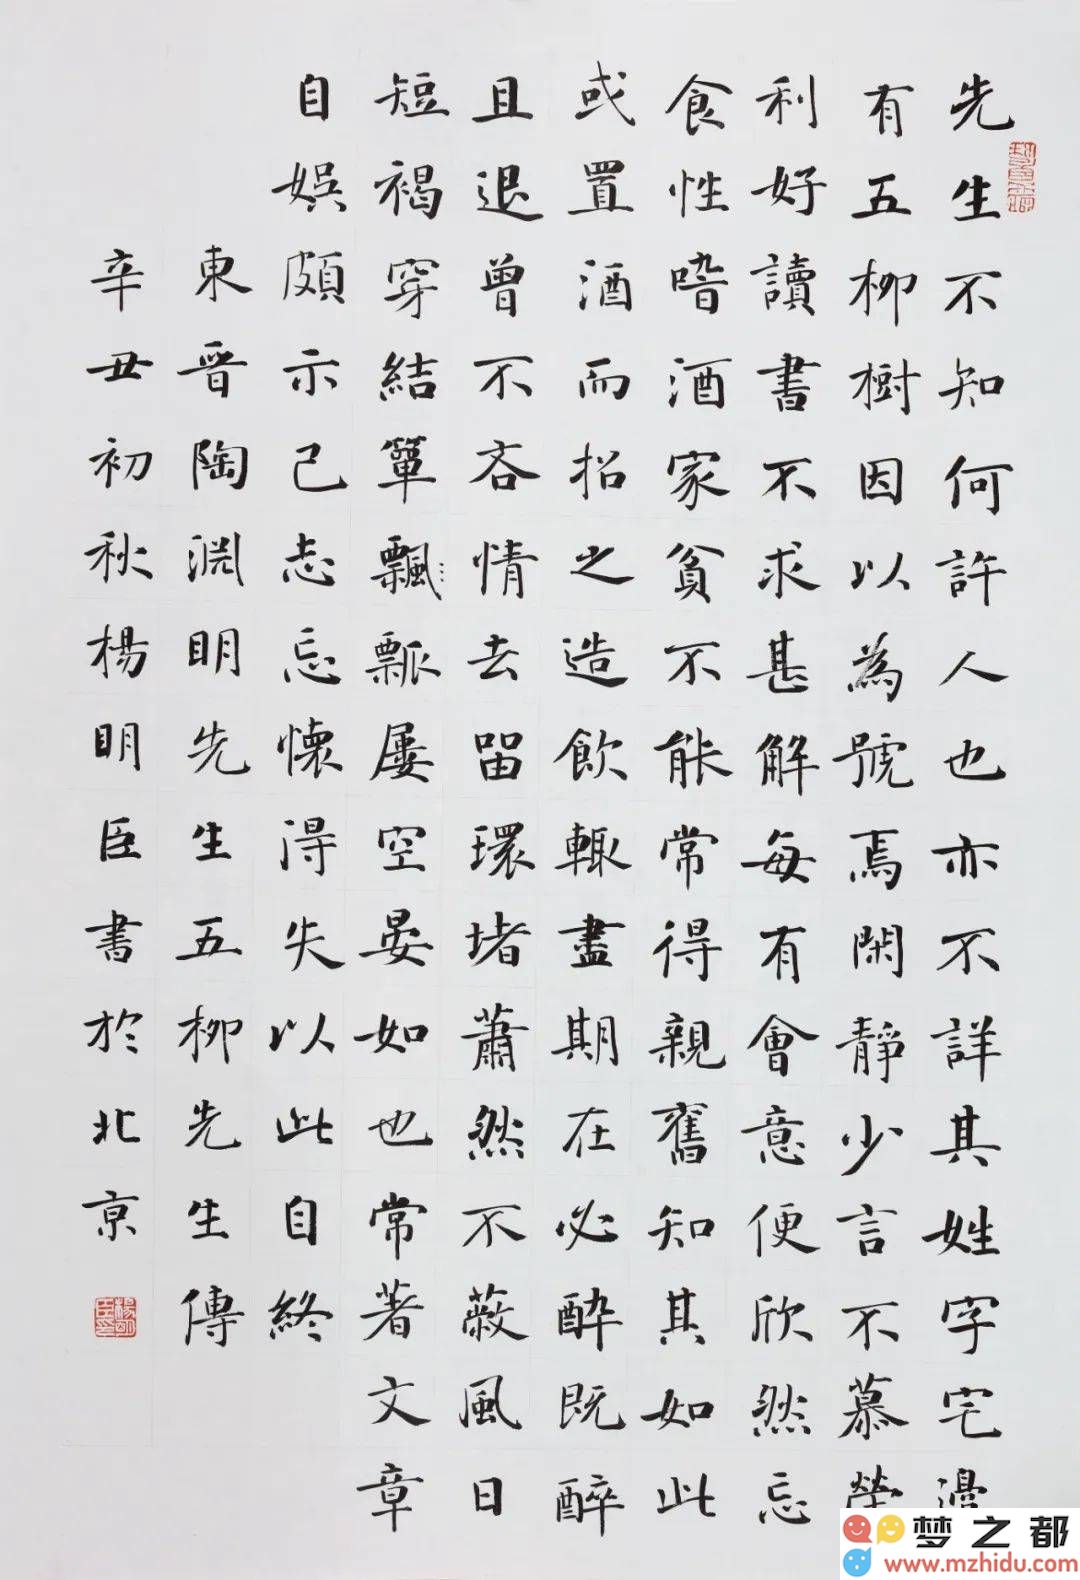 先生不知何許人也亦不詳其姓字宅邊
有五柳樹因以為號焉閑靜少言不慕榮
利好讀書不求甚解每有會意便欣然忘
食性嗜酒家貧不能常得親舊知其如此
或置酒而招之造飲輒盡期在必酔既醉
且退曾不吝情去留環堵蕭然不蔽風日
短褐穿結簞飄瓢屢空晏如也常著文章
自娛頗示己志忘懷得失以此自終
東晉陶淵明先生五柳先生傳
辛丑初秋楊明臣書於北京
楊明臣印
梦之都
www.mzhidu.com